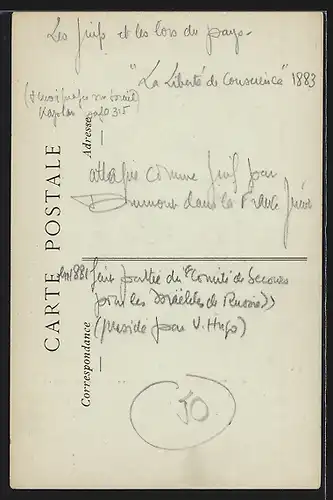 Les Juifs et les lois du pays.
"La Liberté de Conscience" 1883
Kaplan page 315
CARTE POSTALE
Adresse
attaqué comme Juif par
Drumont dans la France Juive
en 1881 fait partie du "Comité de Secours
pour les Israélites de Russie"
(présidé par V. Hugo)
Correspondance
50